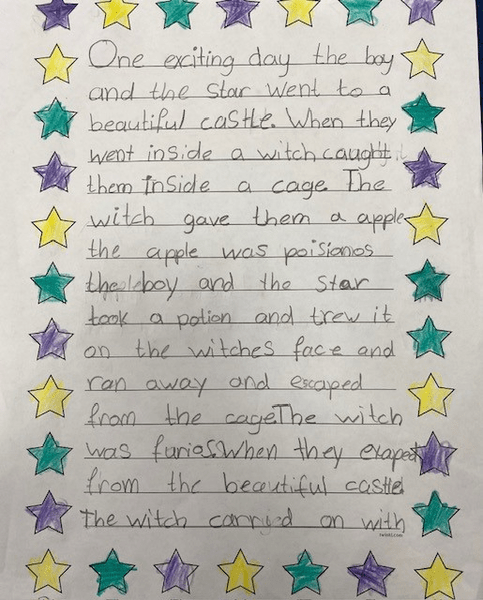 One exciting day the boy
and the star went to a
beautiful castle. When they
went inside a witch caught
them inside a cage. The
witch gave them a apple
the apple was poisionos
the boy and the star
took a potion and trew it
on the witches face and
ran away and escaped
from the cage The witch
was furias When they exaped
from the beautiful castle
The witch carried on with
twinkl.com